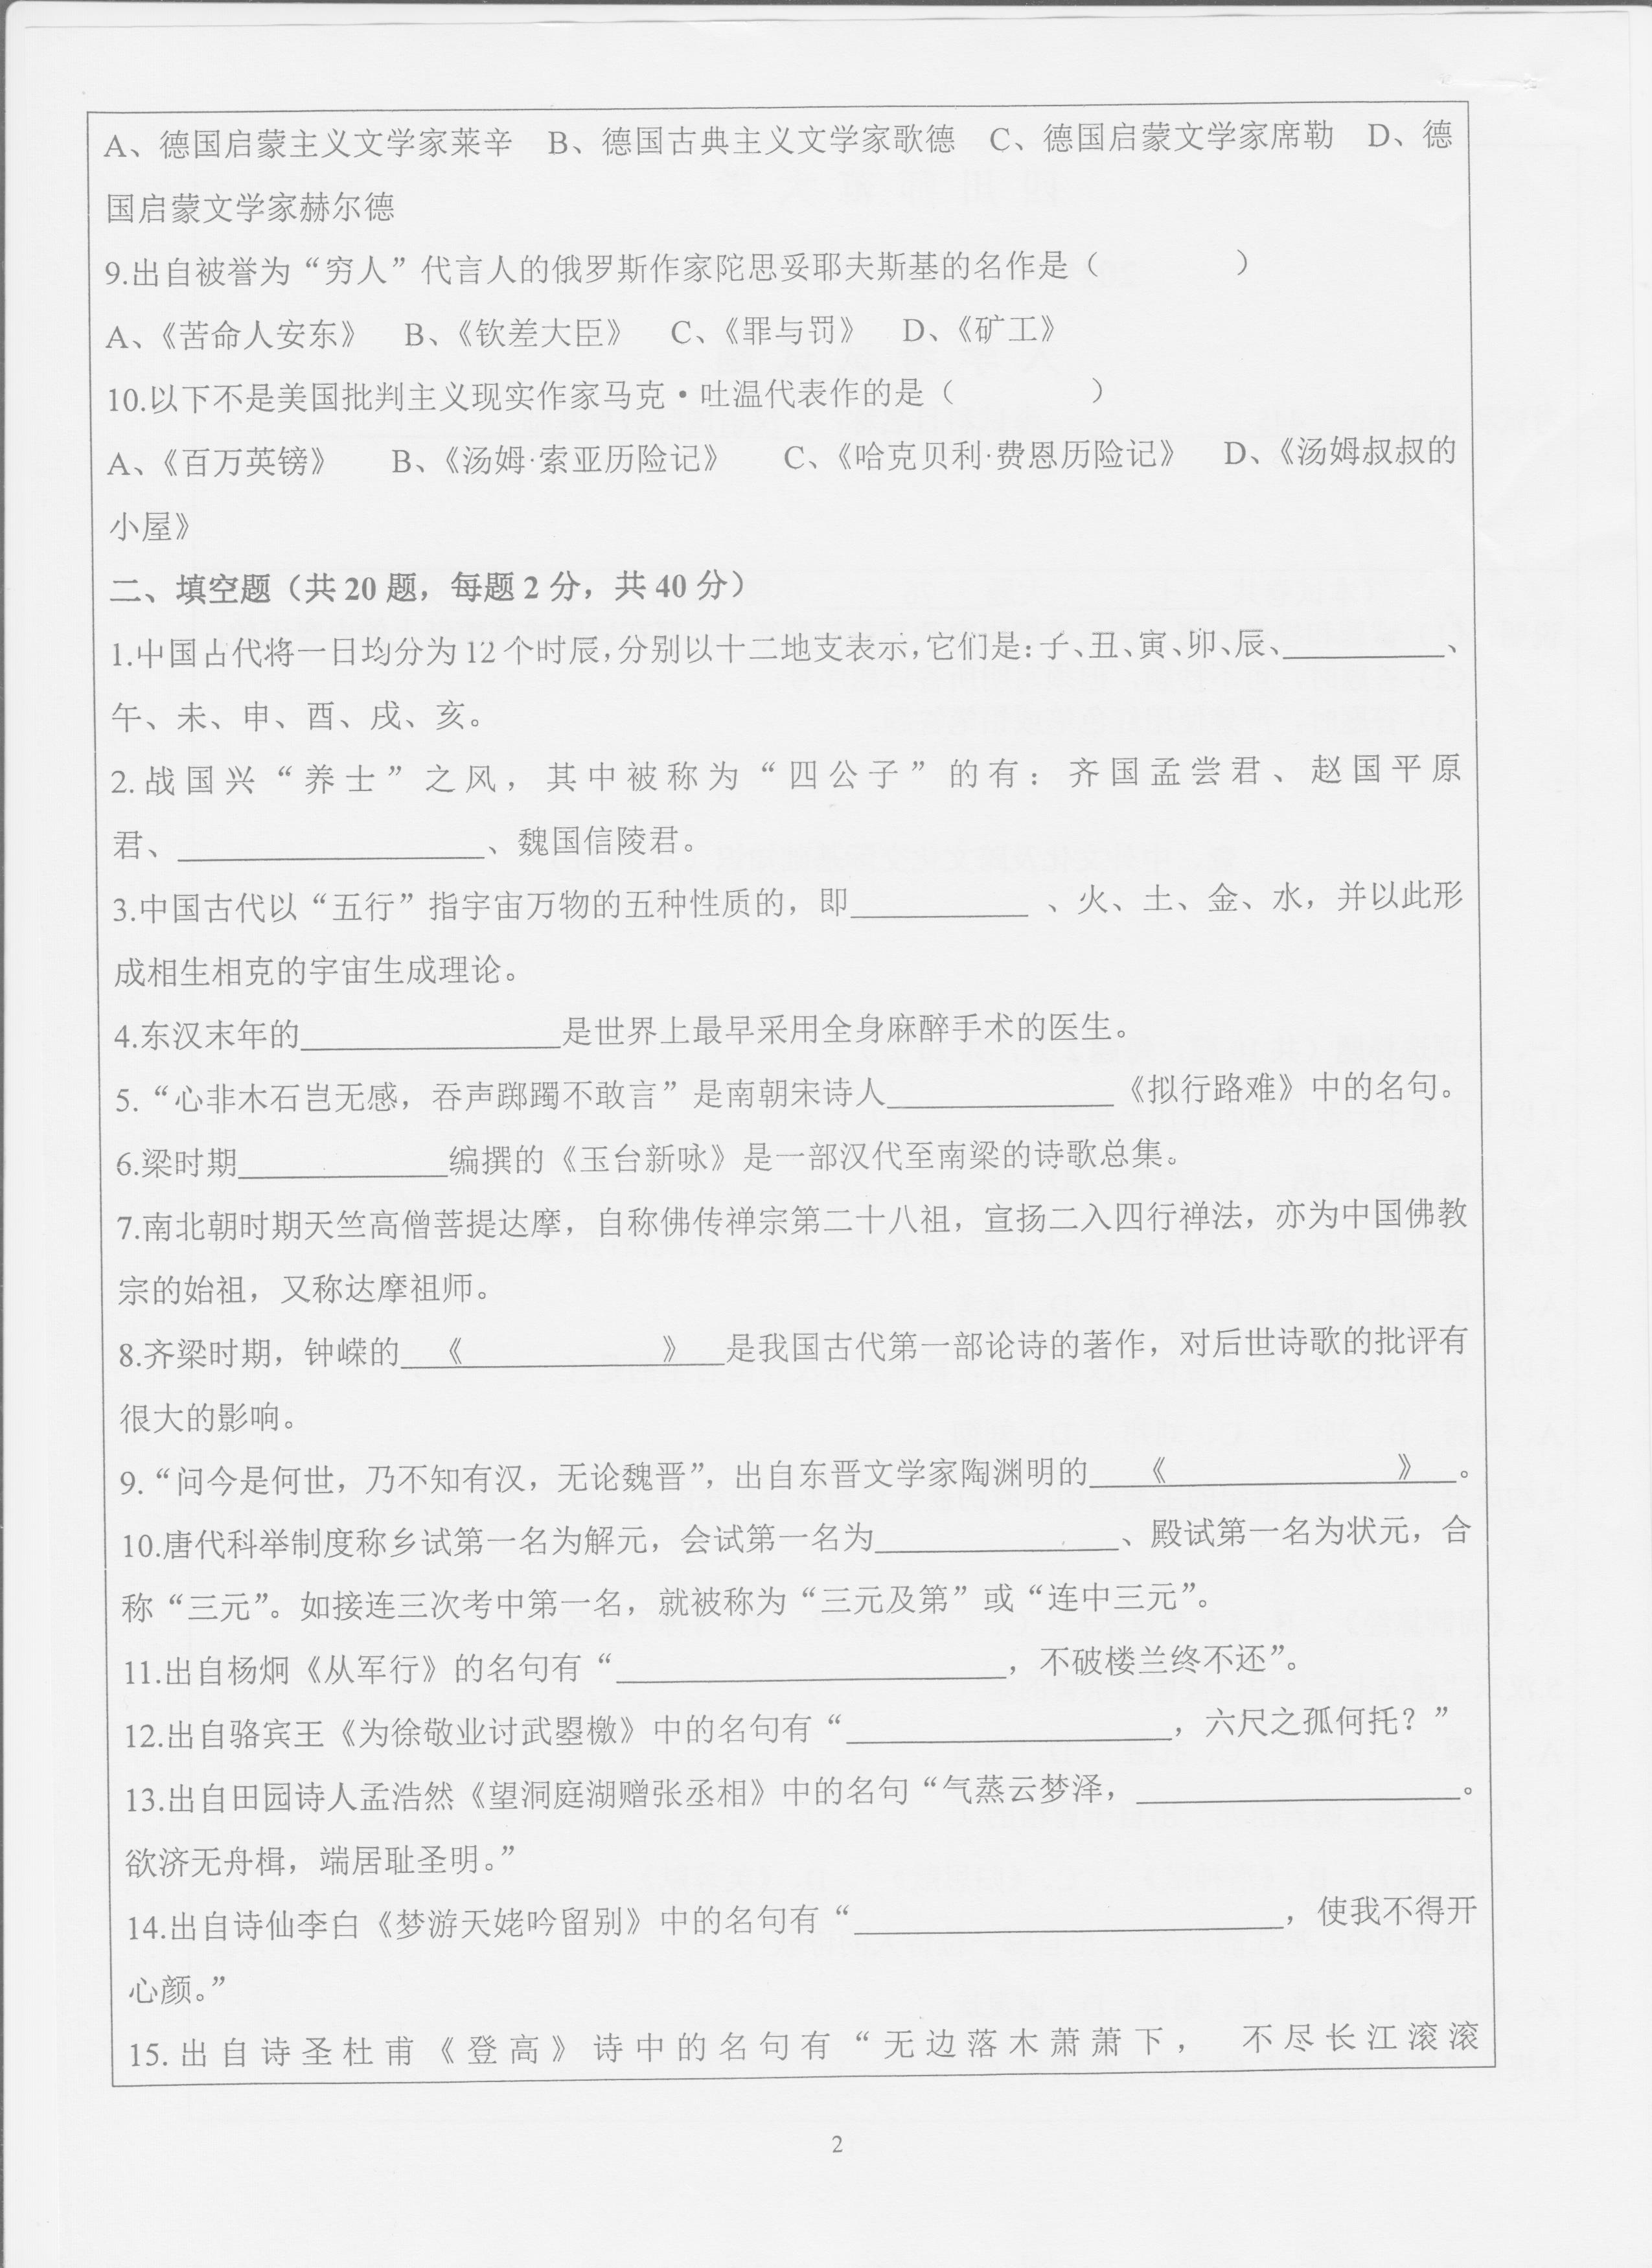 A、德国启蒙主义文学家莱辛　B、德国古典主义文学家歌德　C、德国启蒙文学家席勒　D、德
国启蒙文学家赫尔德
9.出自被誉为“穷人”代言人的俄罗斯作家陀思妥耶夫斯基的名作是（　　　　）
A、《苦命人安东》　B、《钦差大臣》　C、《罪与罚》　D、《矿工》
10.以下不是美国批判主义现实作家马克·吐温代表作的是（　　　　）
A、《百万英镑》　B、《汤姆·索亚历险记》　C、《哈克贝利·费恩历险记》　D、《汤姆叔叔的
小屋》
二、填空题（共 20 题，每题 2 分，共 40 分）
1.中国古代将一日均分为 12 个时辰,分别以十二地支表示,它们是:子、丑、寅、卯、辰、__________、
午、未、申、酉、戌、亥。
2.战国兴“养士”之风，其中被称为“四公子”的有：齐国孟尝君、赵国平原
君、___________________、魏国信陵君。
3.中国古代以“五行”指宇宙万物的五种性质的，即___________ 、火、土、金、水，并以此形
成相生相克的宇宙生成理论。
4.东汉末年的________________是世界上最早采用全身麻醉手术的医生。
5.“心非木石岂无感，吞声踯躅不敢言”是南朝宋诗人______________《拟行路难》中的名句。
6.梁时期_____________编撰的《玉台新咏》是一部汉代至南梁的诗歌总集。
7.南北朝时期天竺高僧菩提达摩，自称佛传禅宗第二十八祖，宣扬二入四行禅法，亦为中国佛教
宗的始祖，又称达摩祖师。
8.齐梁时期，钟嵘的__《____________》__是我国古代第一部论诗的著作，对后世诗歌的批评有
很大的影响。
9.“问今是何世，乃不知有汉，无论魏晋”，出自东晋文学家陶渊明的___《______________》__。
10.唐代科举制度称乡试第一名为解元，会试第一名为_______________、殿试第一名为状元，合
称“三元”。如接连三次考中第一名，就被称为“三元及第”或“连中三元”。
11.出自杨炯《从军行》的名句有“________________________，不破楼兰终不还”。
12.出自骆宾王《为徐敬业讨武曌檄》中的名句有“____________________，六尺之孤何托？”
13.出自田园诗人孟浩然《望洞庭湖赠张丞相》中的名句“气蒸云梦泽，____________________。
欲济无舟楫，端居耻圣明。”
14.出自诗仙李白《梦游天姥吟留别》中的名句有“__________________________，使我不得开
心颜。”
15.出自诗圣杜甫《登高》诗中的名句有“无边落木萧萧下，　不尽长江滚滚
2